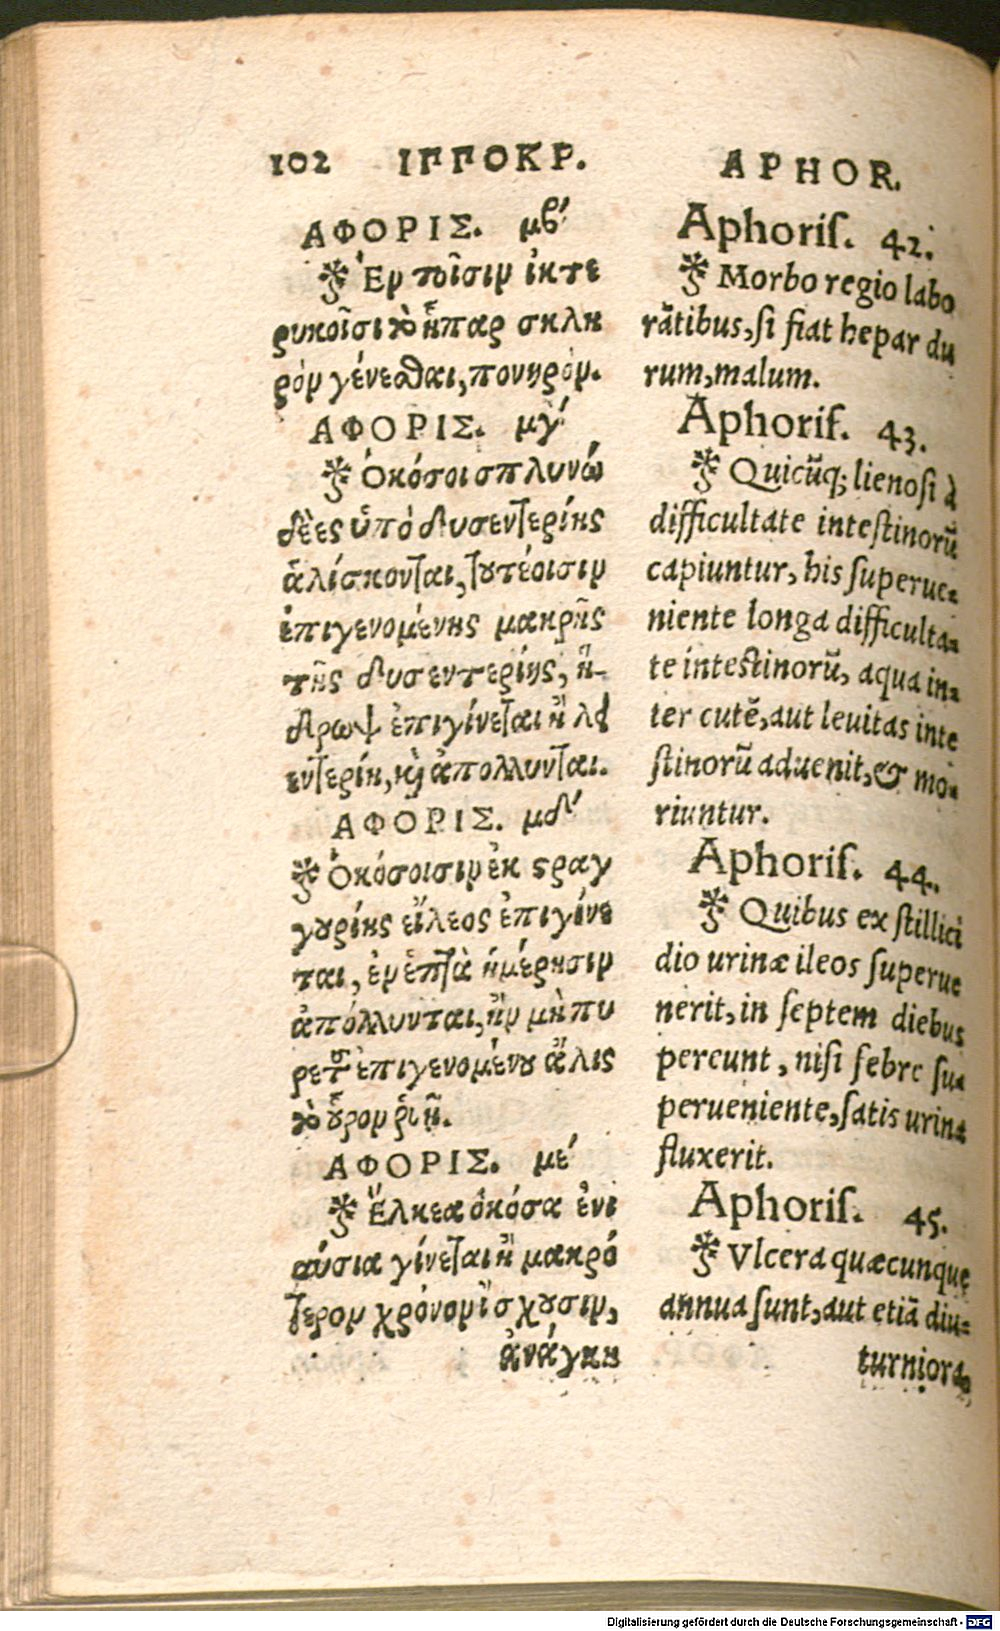 102 ΙΠΠΟΚΡ.
ΑΦΟΡΙΣ. μβ΄
Ἐν τοῖσιν ἰκτε
ρικοῖσι τὸ ἧπαρ σκλη
ρὸν γένεσθαι, πονηρὸν.
ΑΦΟΡΙΣ. μγ΄
Ὁκόσοι σπλυνώ
δεες ὑπὸ δυσεντερίης
ἁλίσκονται, τουτέοισιν
ἐπιγενομένης μακρῆς
τῆς δυσεντερίης, ὕ-
δρωψ ἐπιγίνεται ἢ λει
εντερίη, καὶ ἀπόλλυνται.
ΑΦΟΡΙΣ. μδ΄
Ὁκόσοισιν ἐκ στραγ
γουρίης εἴλεος ἐπιγίνε
ται, ἐν ἑπτὰ ἡμέρῃσιν
ἀπόλλυνται, ἢν μὴ πυ
ρετοῦ ἐπιγενομένου ἅλις
τὸ οὖρον ῥυῇ.
ΑΦΟΡΙΣ. με΄
Ἕλκεα ὁκόσα ἐνι
αύσια γίνεται ἢ μακρό
τερον χρόνον ἴσχουσιν,
ἀνάγκη
APHOR.
Aphoris. 42.
Morbo regio labo
rãtibus, si fiat hepar du
rum, malum.
Aphoris. 43.
Quicũq; lienosi à
difficultate intestinorũ
capiuntur, his superue-
niente longa difficulta-
te intestinorũ, aqua in-
ter cutẽ, aut leuitas inte
stinorũ aduenit, & mo-
riuntur.
Aphoris. 44.
Quibus ex stillici
dio urinæ ileos superue
nerit, in septem diebus
pereunt, nisi febre su-
perueniente, satis urina
fluxerit.
Aphoris. 45.
Vlcera quæcunque
annua sunt, aut etiã diu-
turniora,
Digitalisierung gefördert durch die Deutsche Forschungsgemeinschaft - DFG